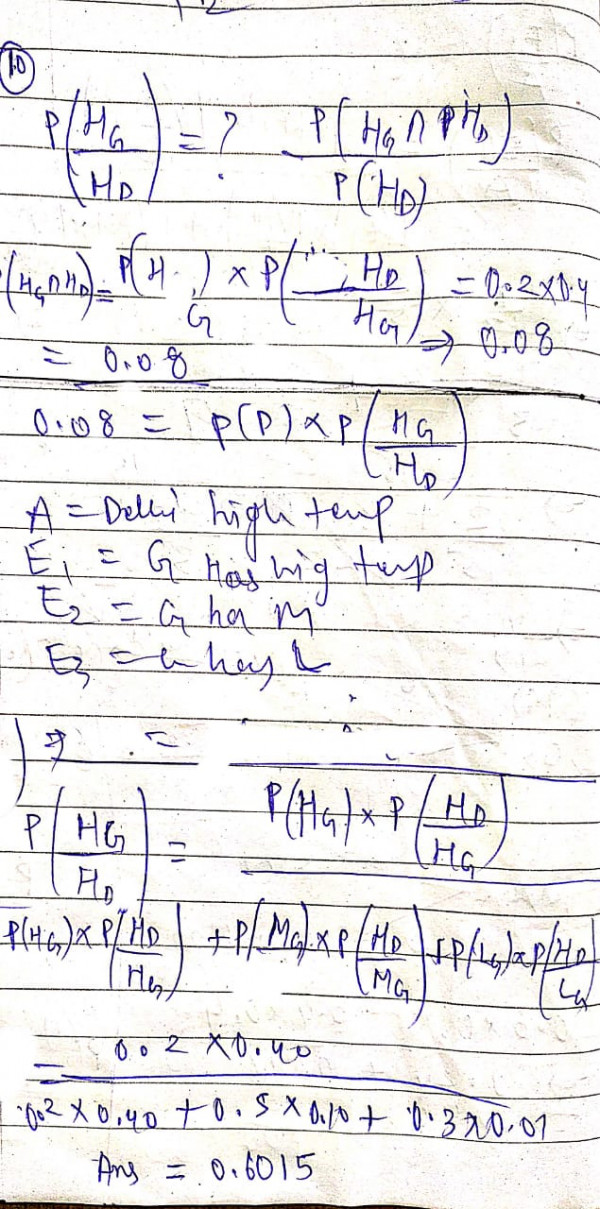 10
P(HG/HD) = ? P(HG ∩ PHD)/P(HD)
(HG∩HD) = P(HG) × P(HD/HG) = 0.2×0.4
⇒ 0.08
= 0.08
0.08 = P(D) × P(HG/HD)
A = Delhi high temp
E1 = G Has hig temp
E2 = G ha M
E3 = G has L
⇒ =
P(HG/HD) = P(HG) × P(HD/HG)
P(HG) × P(HD/HG) + P(MG) × P(HD/MG) + P(LG) × P(HD/LG)
= 0.2 × 0.40
0.2 × 0.40 + 0.5 × 0.10 + 0.3 × 0.01
Ans = 0.6015